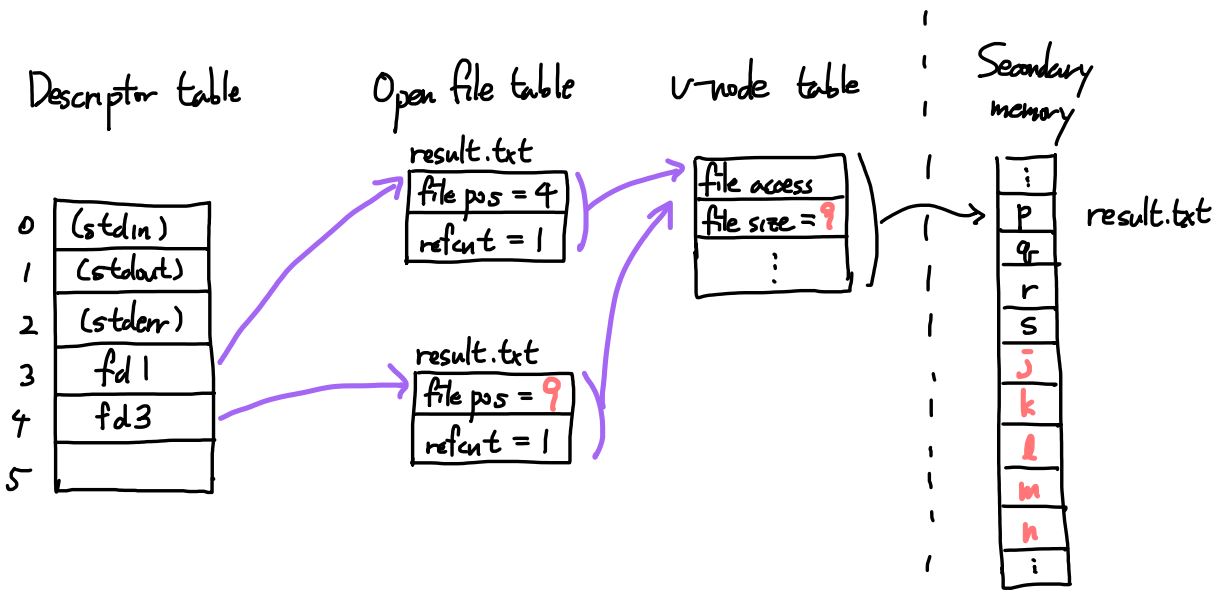 Descriptor table
0 (stdin)
1 (stdout)
2 (stderr)
3 fd1
4 fd3
5
Open file table
result.txt
file pos = 4
refcnt = 1
result.txt
file pos = 9
refcnt = 1
v-node table
file access
file size = 9
⋮
Secondary
memory
⋮
p
q
r
s
j
k
l
m
n
⋮
result.txt